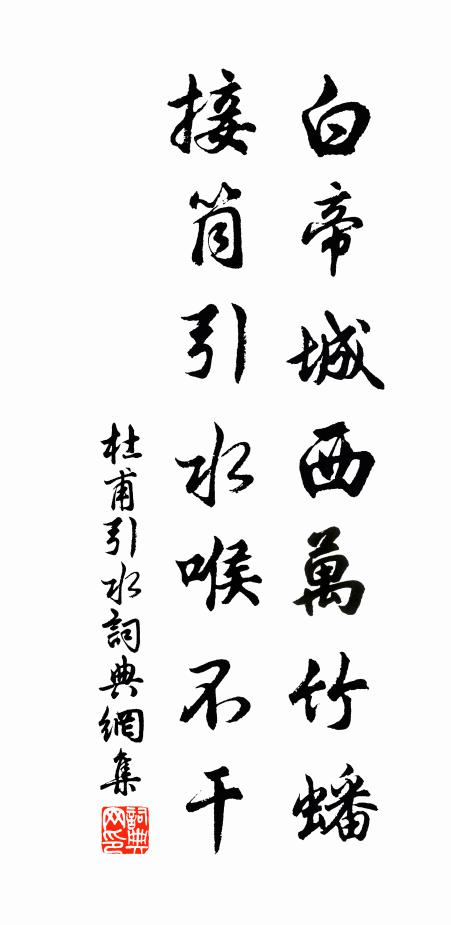 白帝城西萬竹蟠
接筒引水喉不干
杜甫引水詞典網集
詞典网印